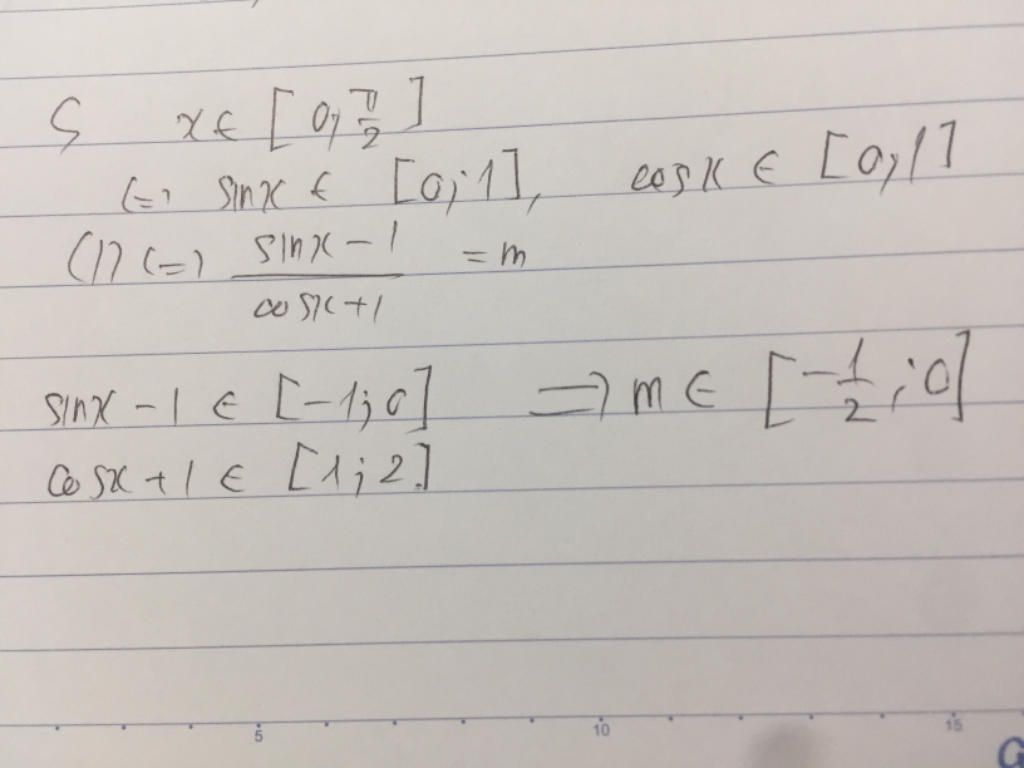 5 x ∈ [0; π/2]
(=) sinx ∈ [0; 1], cosx ∈ [0; 1]
(1) (=) (sinx - 1)/(cosx + 1) = m
sinx - 1 ∈ [-1; 0] => m ∈ [-1/2; 0]
cosx + 1 ∈ [1; 2]
5 10 15
G